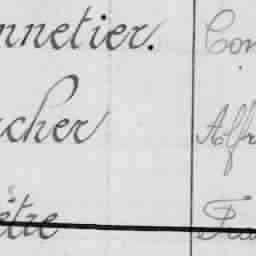 nnetier. Con
cher Alfr
être Fra